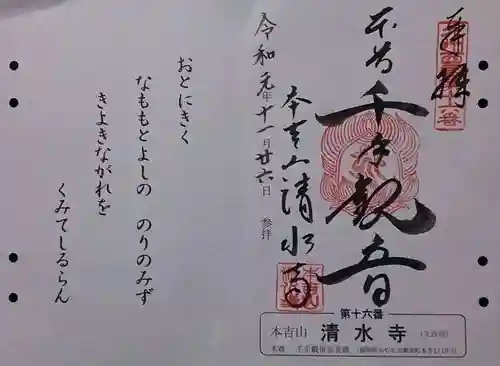 奉拝
本尊
千手観音
本吉山清水寺
令和元年十一月廿六日 参拝
おとにきく
なももとよしの のりのみず
きよきながれを
くみてしるらん
第十六番
本吉山 清水寺
本尊 千手観世音菩薩